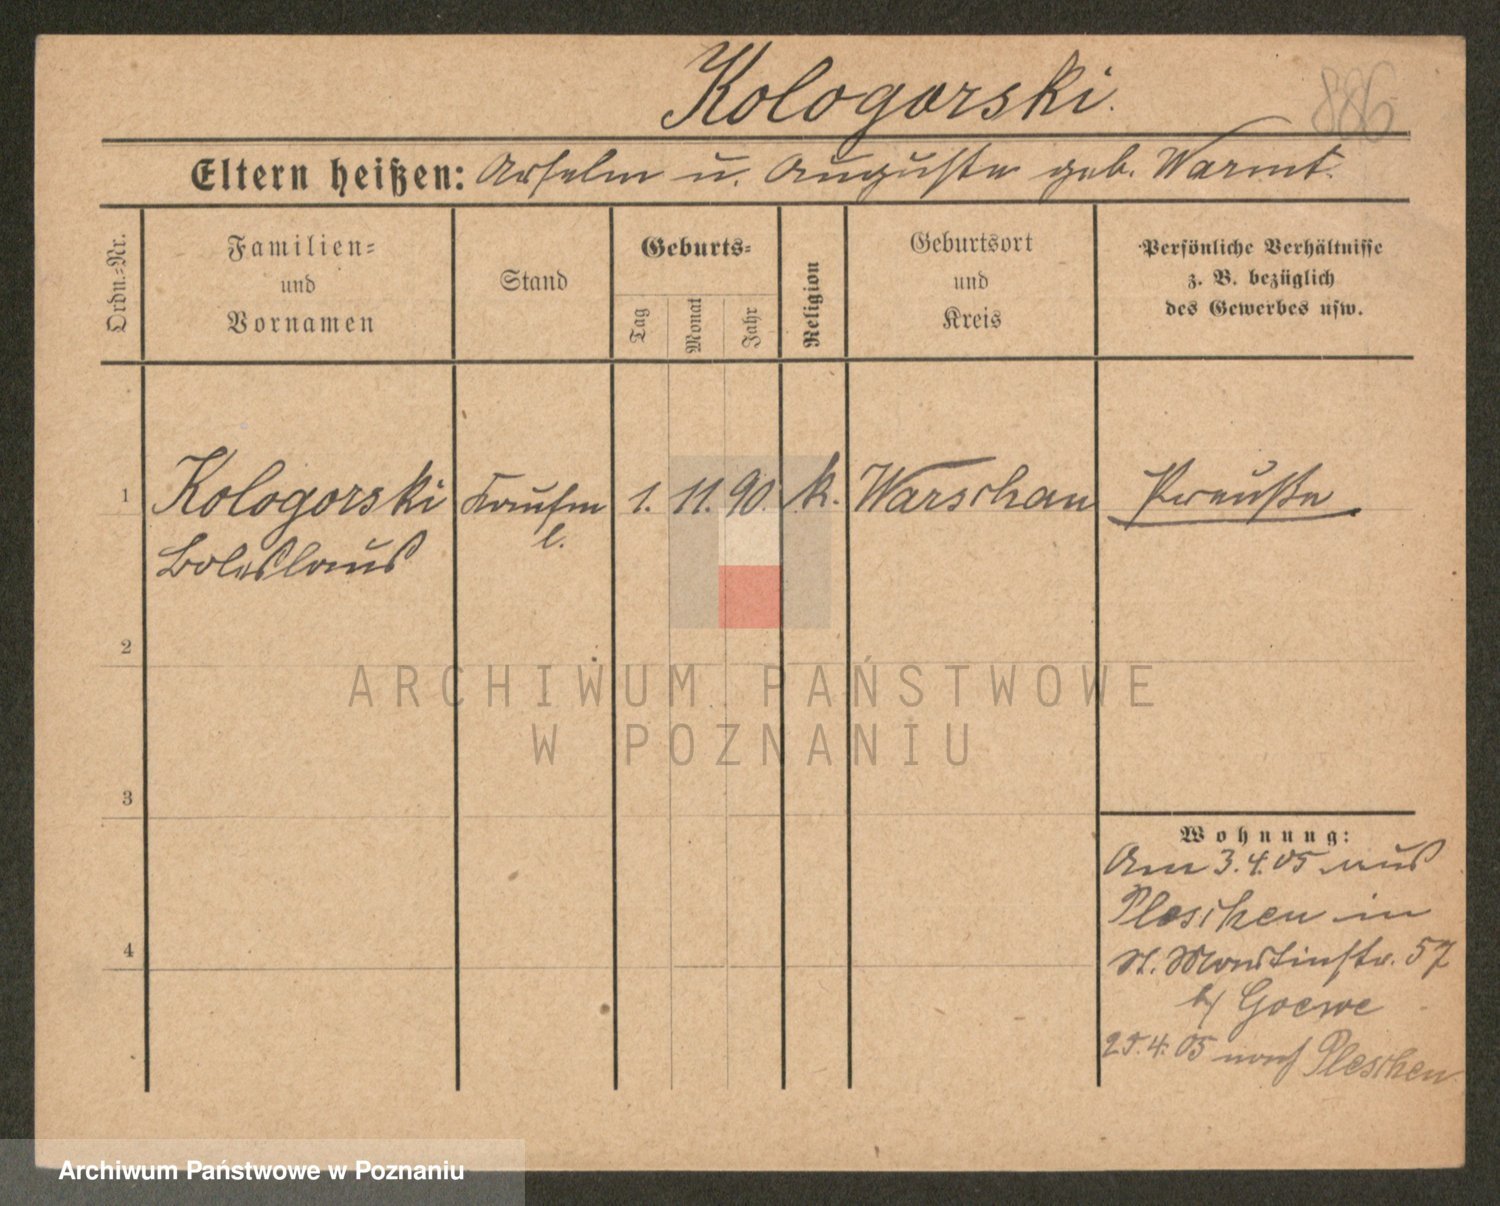 Kologorski.
886
Eltern heißen: Anselm u. Auguste geb. Warmt.
Ordn.-Nr.
Familien-
und
Vornamen
Stand
Geburts-
Tag
Monat
Jahr
Religion
Geburtsort
und
Kreis
Persönliche Verhältnisse
z. B. bezüglich
des Gewerbes usw.
1 Kologorski Kaufm 1. 11. 90. k. Warschau Preuße
Boleslaus l.
2
3
4
Wohnung:
Am 3.4.05 aus
Pleschen in
St. Martinstr. 57
b/ Goewe
25.4.05 nach Pleschen
ARCHIWUM PAŃSTWOWE
W POZNANIU
Archiwum Państwowe w Poznaniu